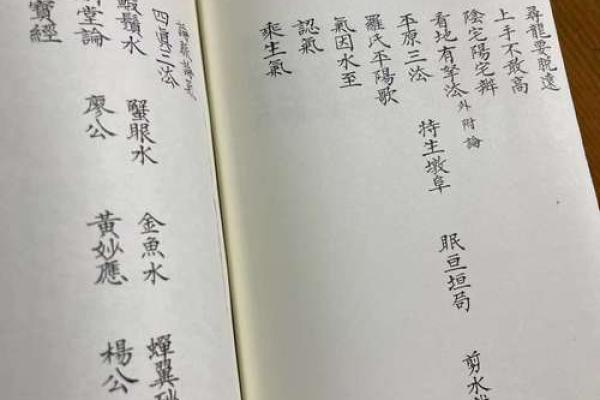 尋龍要脫遠
上手不敢高
陰宅陽宅辨
看地有等法外附論
平原三法 特生墩阜 眠亘垣局 剪水
羅氏平陽歌
氣因水至
認氣
乘生氣
四真三法
蝦鬚水 蟹眼水 金魚水 蟬翼砂
堂論 廖公 黃妙應 楊公
寶經